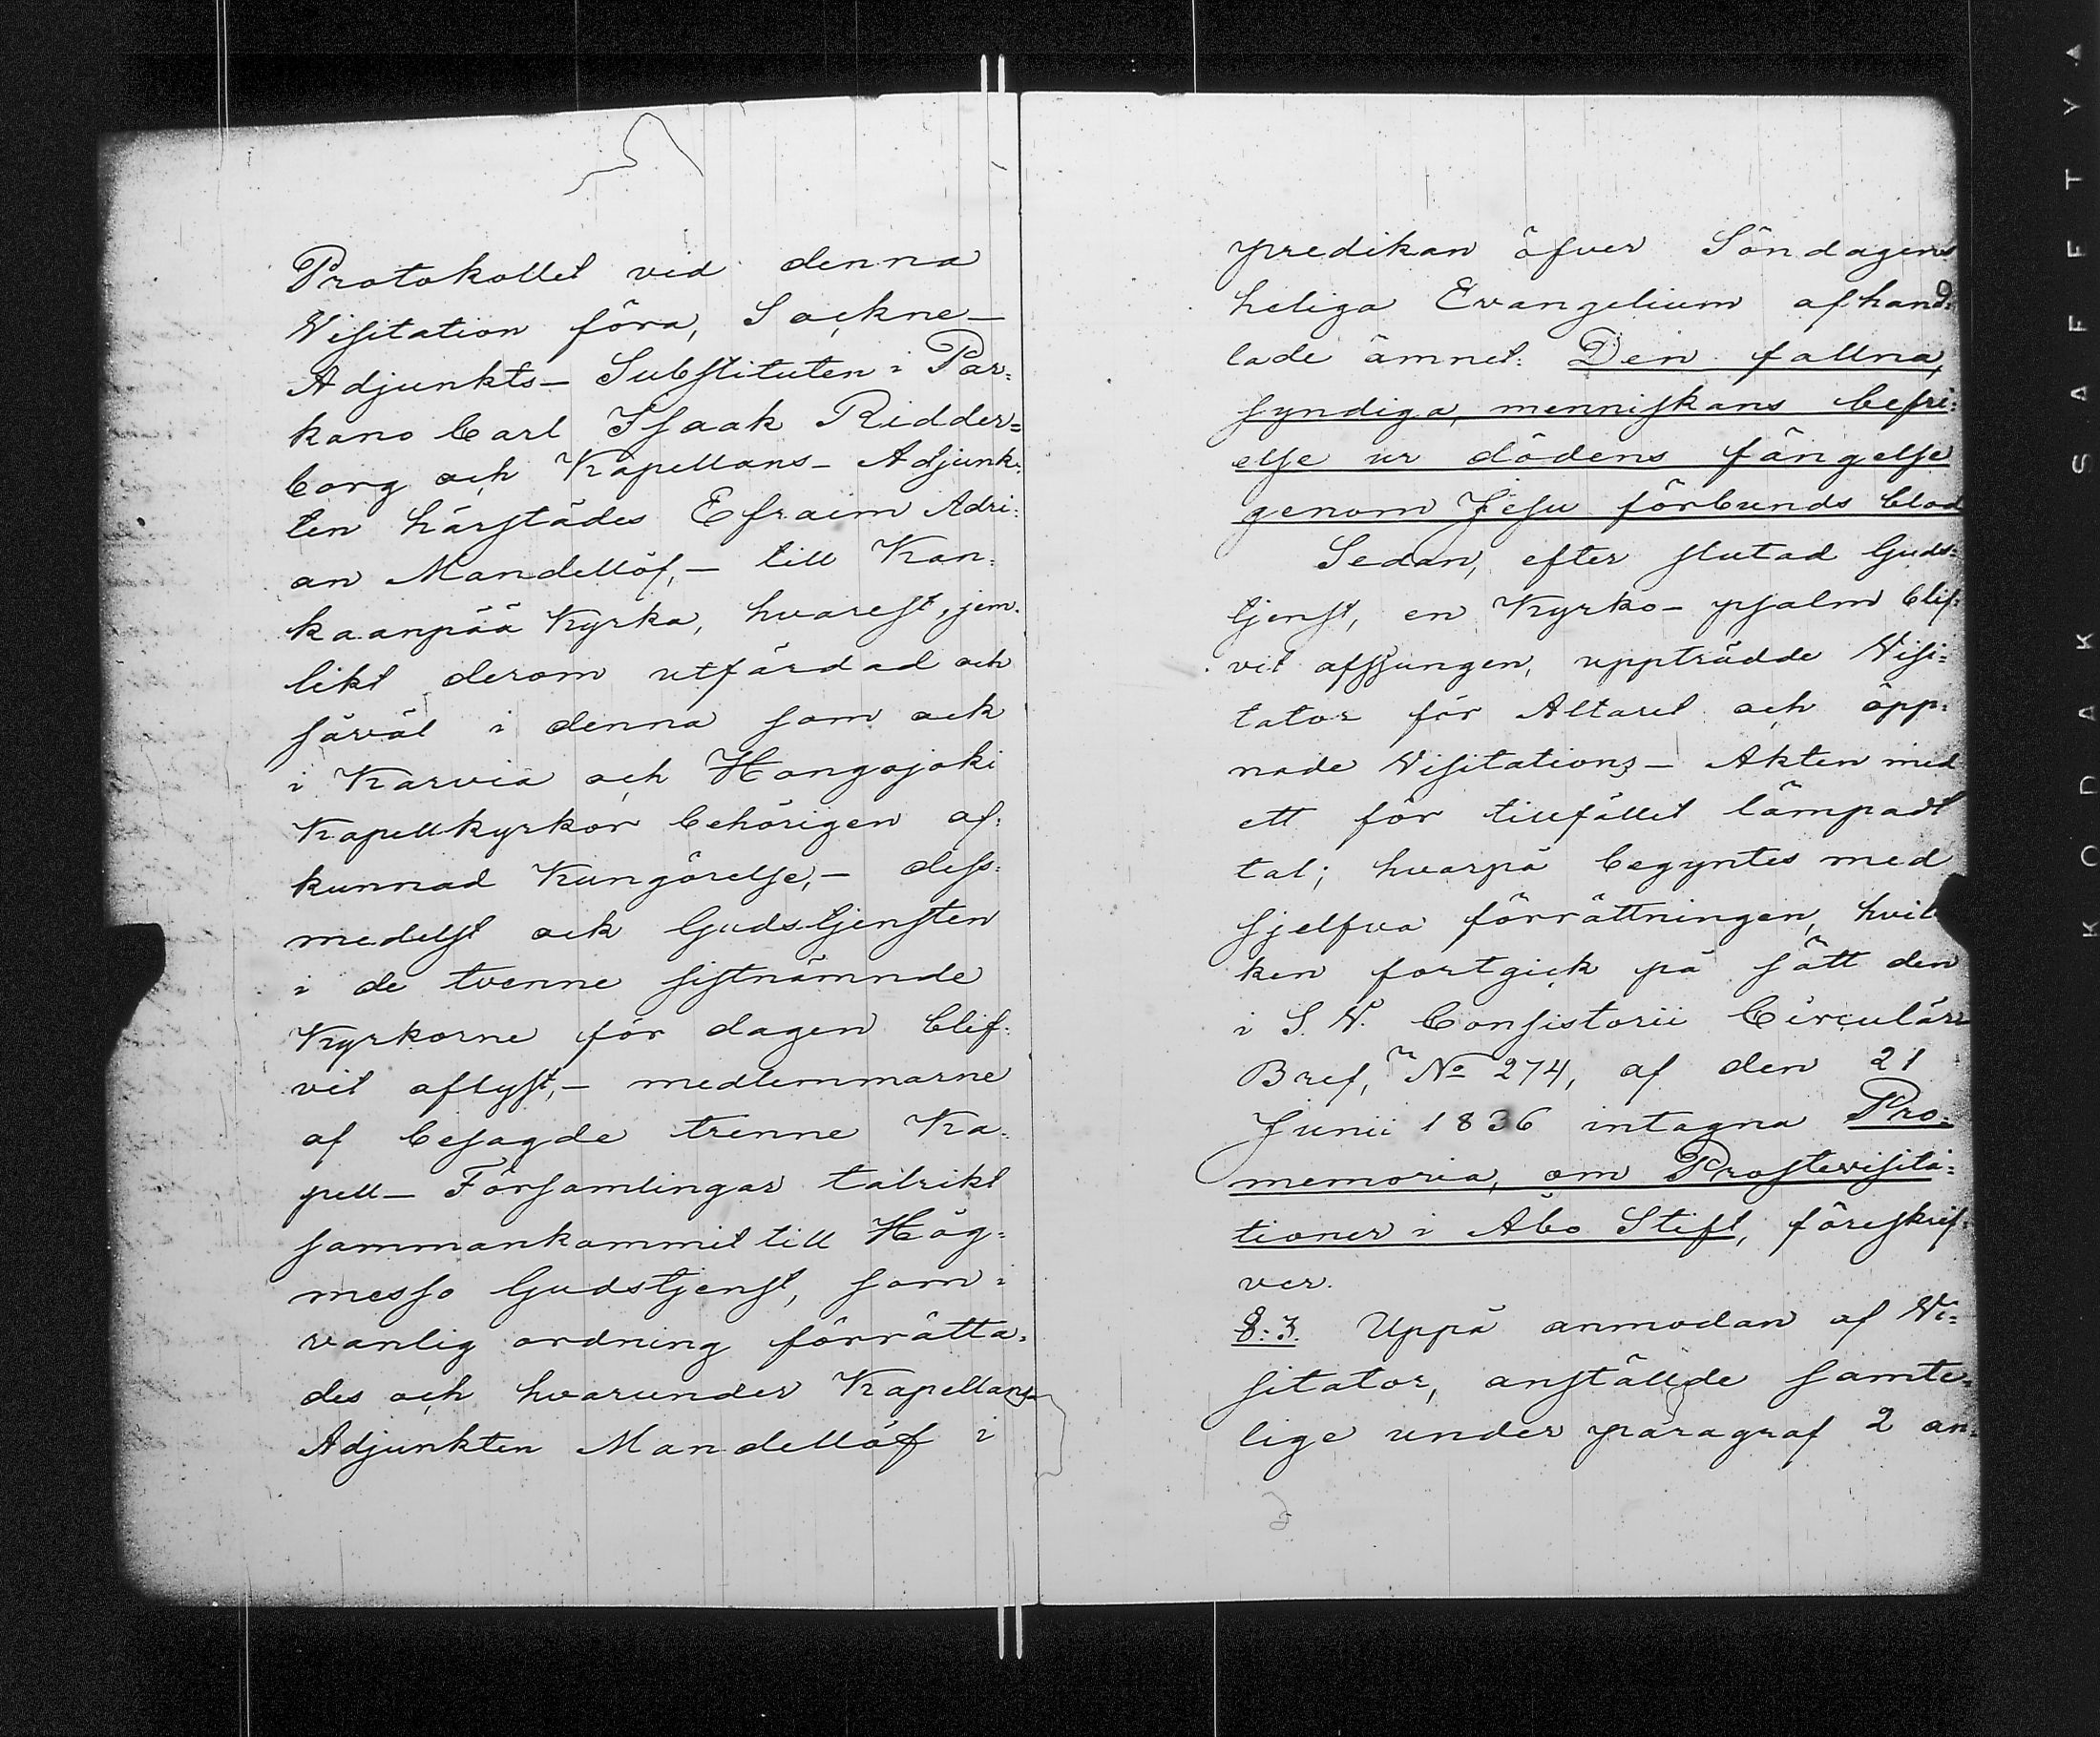 Protokollet vid denna
Visitation föra, Sockne-
Adjunkts-Substituten i Par=
kano Carl Isaak Ridder=
borg och Kapellans-Adjunk=
ten härstädes Efraim Adri=
an Mandellöf,- till Kan=
kaanpää Kyrka, hvarest, jem=
likt derom utfärdad och
såväl i denna som ock
i Karvia och Hongojoki
Kapellkyrkor behörigen af=
kunnad Kungörelse,- dess=
medelst ock Gudstjensten
i de tvenne sistnämnde
Kyrkorne för dagen blif=
vit aflyst,- medlemmarne
af besagde trenne Ka=
pell-Församlingar talrikt
sammankommit till Hög=
messo Gudstjenst, som i
vanlig ordning förrätta=
des och hvarunder Kapellans-
Adjunkten Mandellöf i
predikan öfver Söndagens
heliga Evangelium afhand=
lade ämnet: Den fallna,
syndiga, menniskans befri=
else ur dödens fängelse
genom Jesu förbunds blod
Sedan, efter slutad Guds=
tjenst, en Kyrko-psalm blif=
vit afsjungen, uppträdde Visi=
tator för Altaret och öpp=
nade Visitations-Akten med
ett för tillfället lämpadt
tal; hvarpå begyntes med
sjelfva förrättningen, hvil
ken fortgick på sätt den
i S. V. Consistorii Circulär
Bref, No 274, af den 21
Junii 1836 intagna Pro=
memoria, om Prostevisita=
tioner i Åbo Stift, föreskrif=
ver.
§. 3. Uppå anmodan af Vi=
sitator, anställde samte=
lige under paragraf 2 an=
KODAK SAFETY A